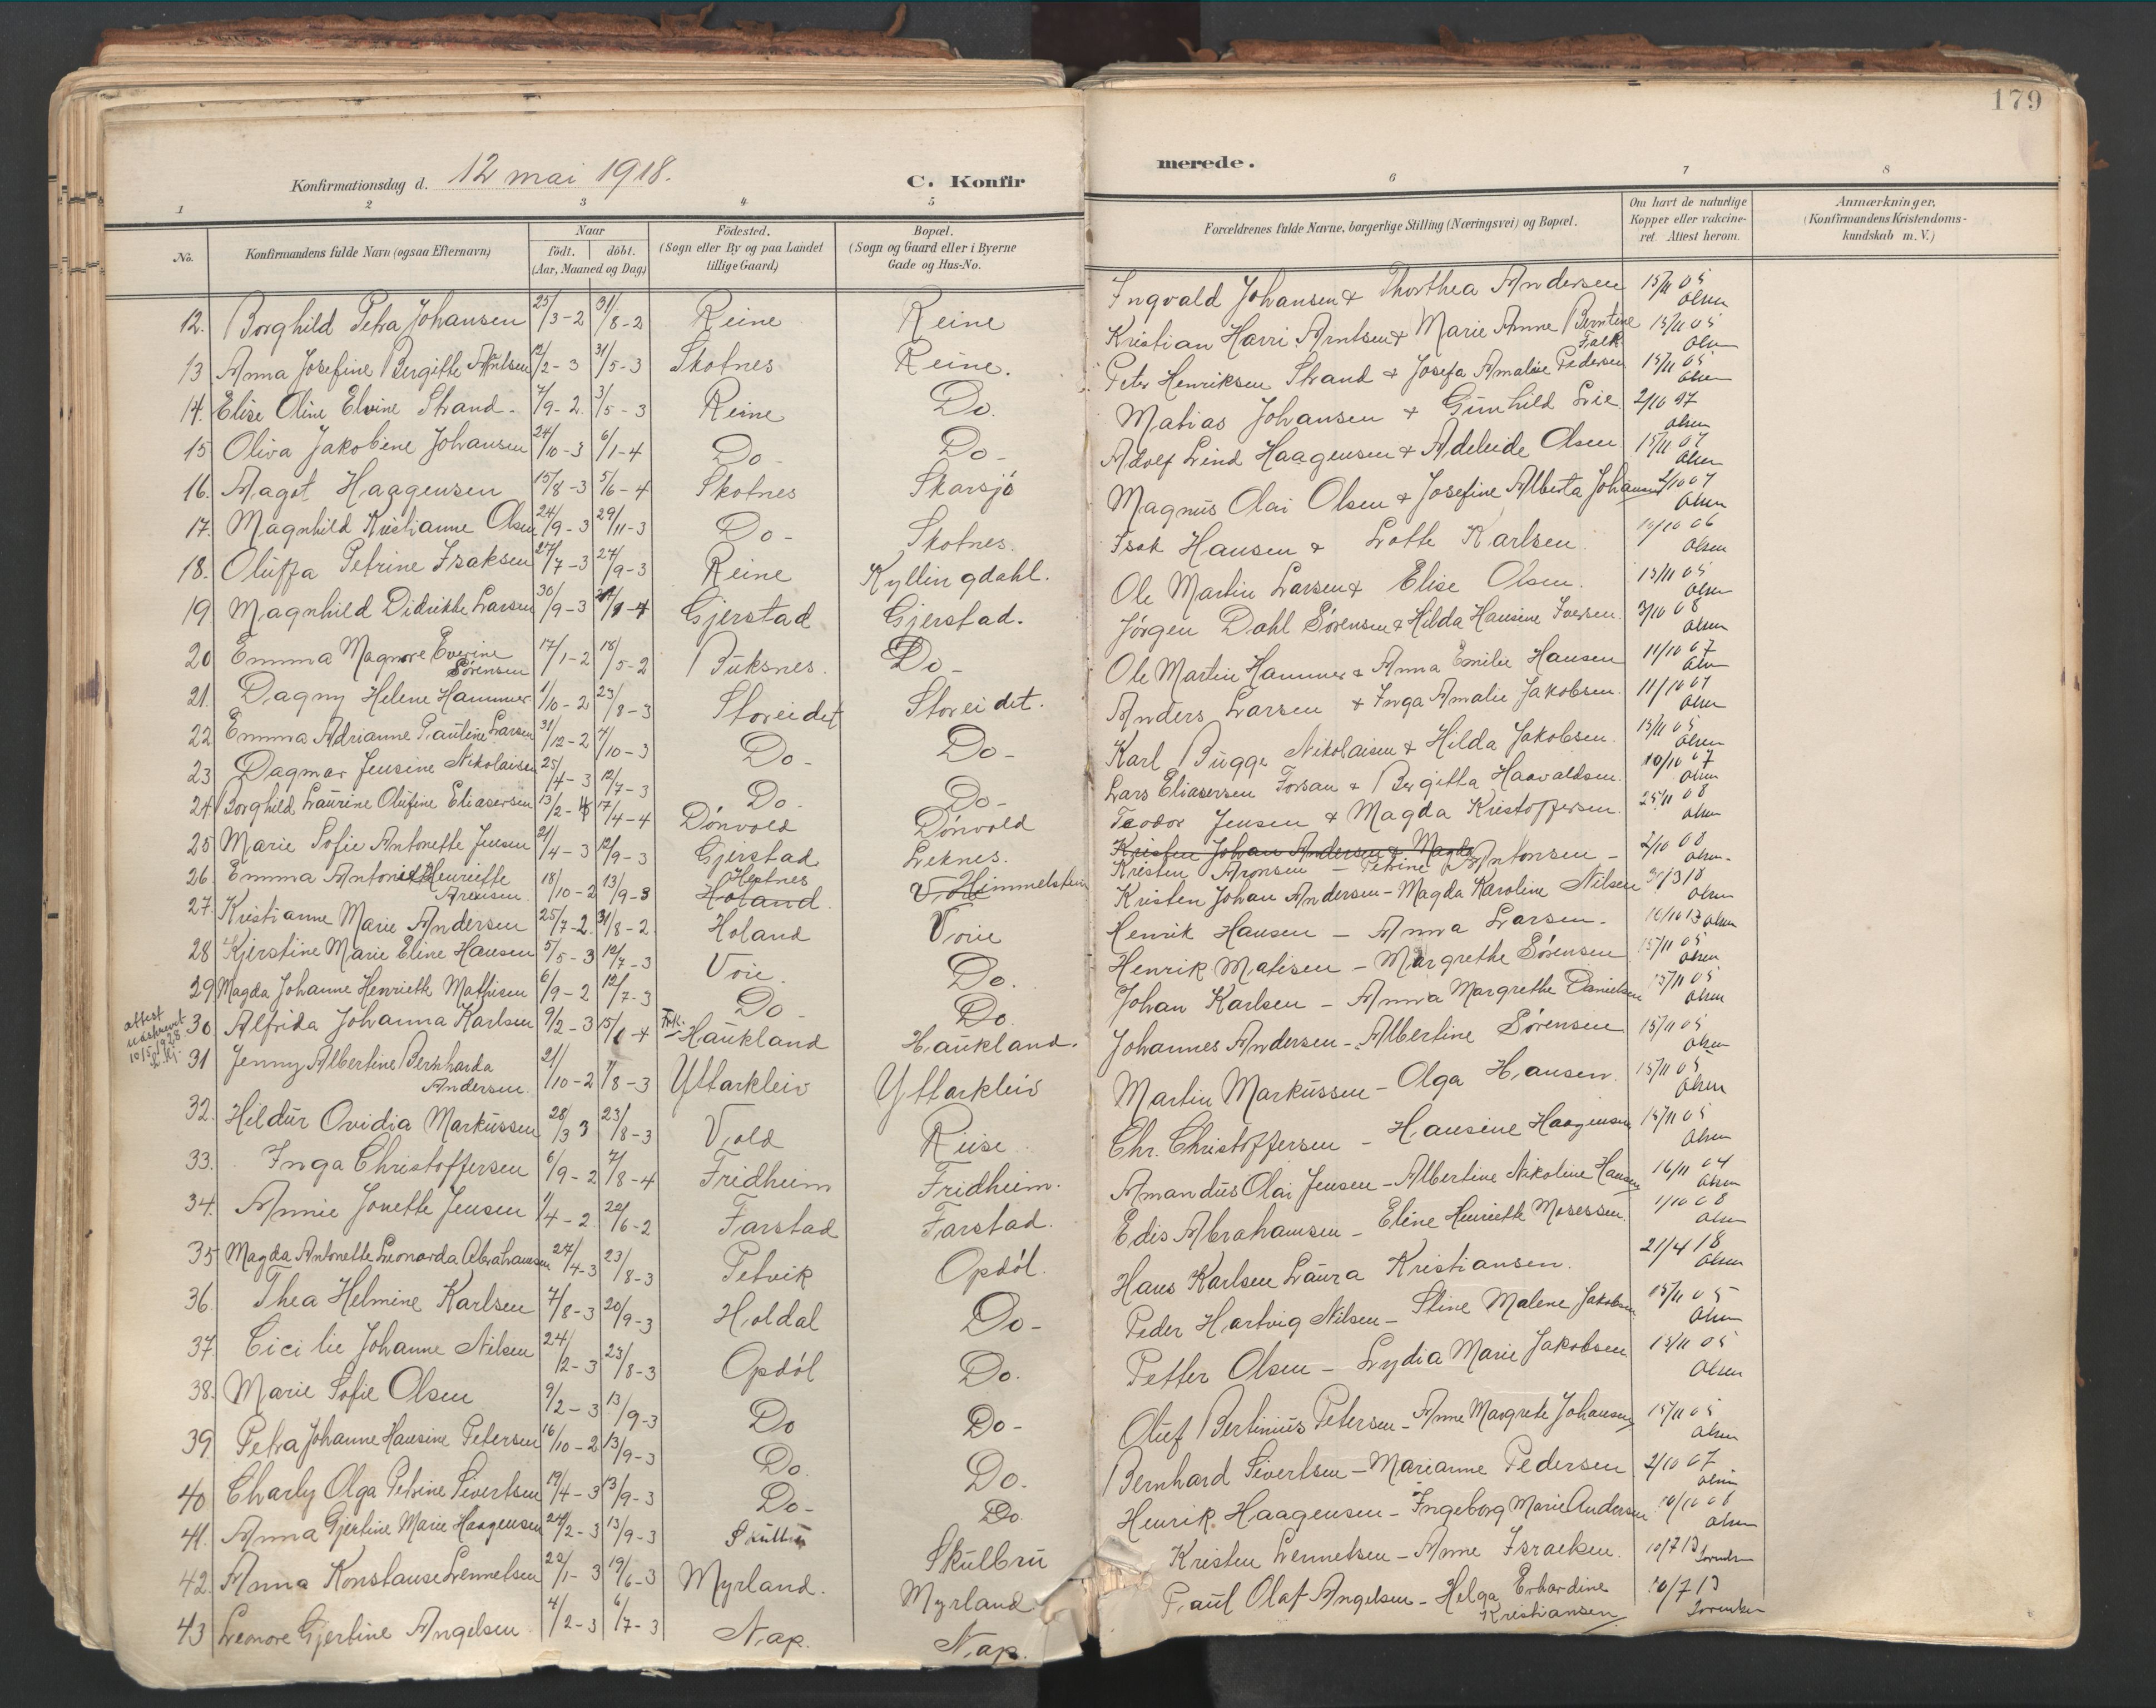 179
Konfirmationsdag d. 12 mai 1918. C. Konfir merede.
1 2 3 4 5 6 7 8
No. Konfirmandens fulde Navn (ogsaa Efternavn) Naar født. døbt. (Aar, Maaned og Dag) Fødested. (Sogn eller By og paa Landet tillige Gaard) Bopæl. (Sogn og Gaard eller i Byerne Gade og Hus-No. Forældrenes fulde Navne, borgerlige Stilling (Næringsvei) og Bopæl. Om havt de naturlige Kopper eller vakcineret. Attest herom. Anmærkninger, (Konfirmandens Kristendomskundskab m. V.)
12. Borghild Petra Johansen 25/3-2 31/8-2 Reine Reine Ingvald Johansen & Thorthea Andersen 15/11 05 Olsen
13 Anna Josefine Bergitte Arntsen 12/2-3 31/5-3 Skotnes Reine. Kristian Harri Arntsen & Marie Anne Berntine Falk 15/11 05 Olsen
14. Elise Oline Elvine Strand - 7/9-2 3/5-3 Reine Do. Peter Henriksen Strand & Josefa Amalie Pedersen 15/11 05 Olsen
15 Oliva Jakobine Johansen 24/10-3 6/1-4 Do- Do- Matias Johansen & Gunhild Lie 2/10 07 Olsen
16. Magot Haagensen 15/8-3 5/6-4 Skotnes Skarsjö Adolf Lind Haagensen & Adeleide Olsen 15/11 07 Olsen
17. Magnhild Kristianne Olsen 24/9-3 29/11-3 Do- Skotnes. Magnus Olai Olsen & Josefine Alberta Johansen 2/10 07 Olsen
18. Oluffa Petrine Isaksen 27/7-3 27/9-3 Reine Kyllingdahl. Isak Hansen & Lotte Karlsen. 10/10 06 Olsen
19 Magnhild Didrikke Larsen 30/9-3 Gjerstad Gjerstad. Ole Martin Larsen & Elise Olsen. 15/11 05 Olsen
20 Emma Magnore Everine Sørensen 17/1-2 18/5-2 Buksnes. Do- Jørgen Dahl Sørensen & Hilda Hansine Iversen. 3/10 08 Olsen
21. Dagny Helene Hammer 1/10-2 23/8-3 Storeidet Storeidet. Ole Martin Hammer & Anna Emilie Hansen 11/10 07 Olsen
22 Emma Adrianne Pauline Larsen 31/12-2 4/10-3 Do- Do- Anders Larsen & Inga Amalie Jakobsen. 11/10 07 Olsen
23 Dagmar Jensine Nikolaisen 25/4-3 12/7-3 Do- Do- Karl Bugge Nikolaisen & Hilda Jakobsen. 15/11 05 Olsen
24 Borghild Laurine Olufine Eliasersen 13/2-4 17/4-4 Dønvold Dønvold Lars Eliasersen Forsan & Bergitta Haavaldsen. 10/10 07 Olsen
25 Marie Sofie Antonette Jensen 21/4-3 12/9-3 Gjerstad Leknes. Teodor Jensen & Magda Kristoffersen 25/11 08 Olsen
Kristen Johan Andersen & Magda
26. Emma Antonette Henriette Aronsen 18/10-2 13/9-3 Hestnes Holand Voie Himmelstein Kristen Aronsen - Petrine Antonsen - 2/10 08 Olsen.
27. Kristianne Marie Andersen 25/7-2 31/8-2. Holand Voie Kristen Johan Andersen - Magda Karoline Nilsen 30/3 18 Olsen
28 Kjerstine Marie Eline Hansen 5/5-3 12/7-3 Voie Do. Henrik Hansen - Anna Larsen. 10/10 13 Olsen
29 Magda Johanne Henriette Mathisen 6/9-2 12/7-3 Do- Do. Henrik Matisen - Margrethe Sørensen 15/11 05 Olsen
attest utskrevet 10/5 1928.
30 Alfrida Johanna Karlsen 9/2-3 Haukland Haukland. Johan Karlsen - Anna Margrethe Danielsen 15/11 05 Olsen
31 Jenny Albertine Bernharda Andersen 21/10-2 7/8-3 Yttarkleiv Yttarkleiv Johannes Andersen - Albertine Sørensen 15/11 05 Olsen
32. Hildur Ovidia Markussen 28/3 3 23/8-3 Vold Reise Martin Markussen - Olga Hansen. 15/11 05 Olsen
33. Inga Christoffersen 6/9-2 7/8-4 Fridheim Fridheim. Chr. Christoffersen - Hansine Haagensen 15/11 05 Olsen
34. Annie Jonette Jensen 1/4-2 22/6-2 Farstad Farstad. Amandus Olai Jensen - Albertine Nikoline Hansen 16/11 04 Olsen
35 Magda Antonette Leonarda Abrahamsen 27/4-3 23/8-3 Petvik Opdøl. Edis Abrahamsen - Eline Henriette Mosessen. 1/10 08 Olsen
36. Thea Helmine Karlsen 7/8-3 20/9-3 Holdal Do- Hans Karlsen Laura Kristiansen. 21/4 18 Olsen
37. Cicilie Johanne Nilsen 24/2-3 23/8-3 Opdøl Do. Peder Hartvig Nilsen - Stine Malene Jakobsen 15/11 05 Olsen
38. Marie Sofie Olsen 9/2-3 13/9-3 Do Do- Petter Olsen - Lydia Marie Jakobsen 15/11 05 Olsen
39. Petra Johanne Hansine Petersen 16/10-2 13/9-3 Do. Do. Oluf Bertinius Petersen - Anne Margrete Johansen 15/11 05 Olsen
40 Charly Olga Petrine Sivertsen 19/4-3 13/9-3 Do- Do Bernhard Sivertsen - Marianne Pedersen 2/10 07 Olsen
41. Anna Gjertine Marie Haagensen 24/2-3 13/9-3 Skulbru Henrik Haagensen - Ingeborg Marie Andersen 10/10 06 Olsen
42. Anna Konstanse Lennetsen 22/1-3 19/6-3 Myrland. Myrland Kristen Lennetsen - Anne Israelsen. 10/7 13
43 Leonore Gjertine Angelsen 4/2-3 6/7-3 Nap. Nap. Paul Olaf Angelsen - Helga Erhardine Kristiansen 10/7 13